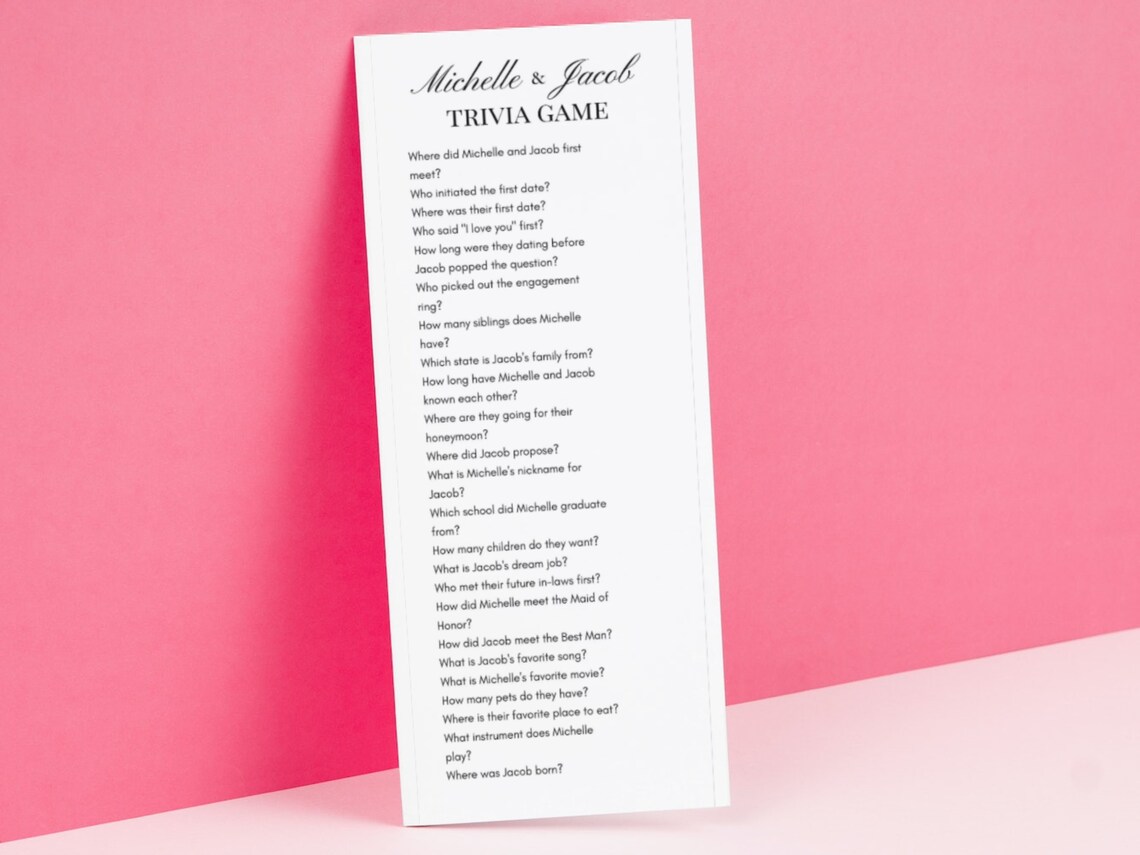 Michelle & Jacob
TRIVIA GAME
Where did Michelle and Jacob first
meet?
Who initiated the first date?
Where was their first date?
Who said "I love you" first?
How long were they dating before
Jacob popped the question?
Who picked out the engagement
ring?
How many siblings does Michelle
have?
Which state is Jacob's family from?
How long have Michelle and Jacob
known each other?
Where are they going for their
honeymoon?
Where did Jacob propose?
What is Michelle's nickname for
Jacob?
Which school did Michelle graduate
from?
How many children do they want?
What is Jacob's dream job?
Who met their future in-laws first?
How did Michelle meet the Maid of
Honor?
How did Jacob meet the Best Man?
What is Jacob's favorite song?
What is Michelle's favorite movie?
How many pets do they have?
Where is their favorite place to eat?
What instrument does Michelle
play?
Where was Jacob born?